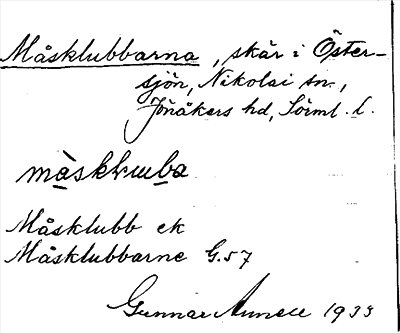 Måsklubbarna, skär i Öster-
sjön, Nikolai sn.,
Jönåkers hd, Sörml. l.
Måsklubb ek
Måsklubbarne G.57
Gunnar Annell 1933